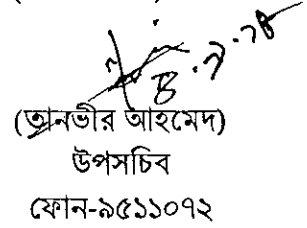 (তানভীর আহমেদ)
উপসচিব
ফোন-৯৫১১০৭২